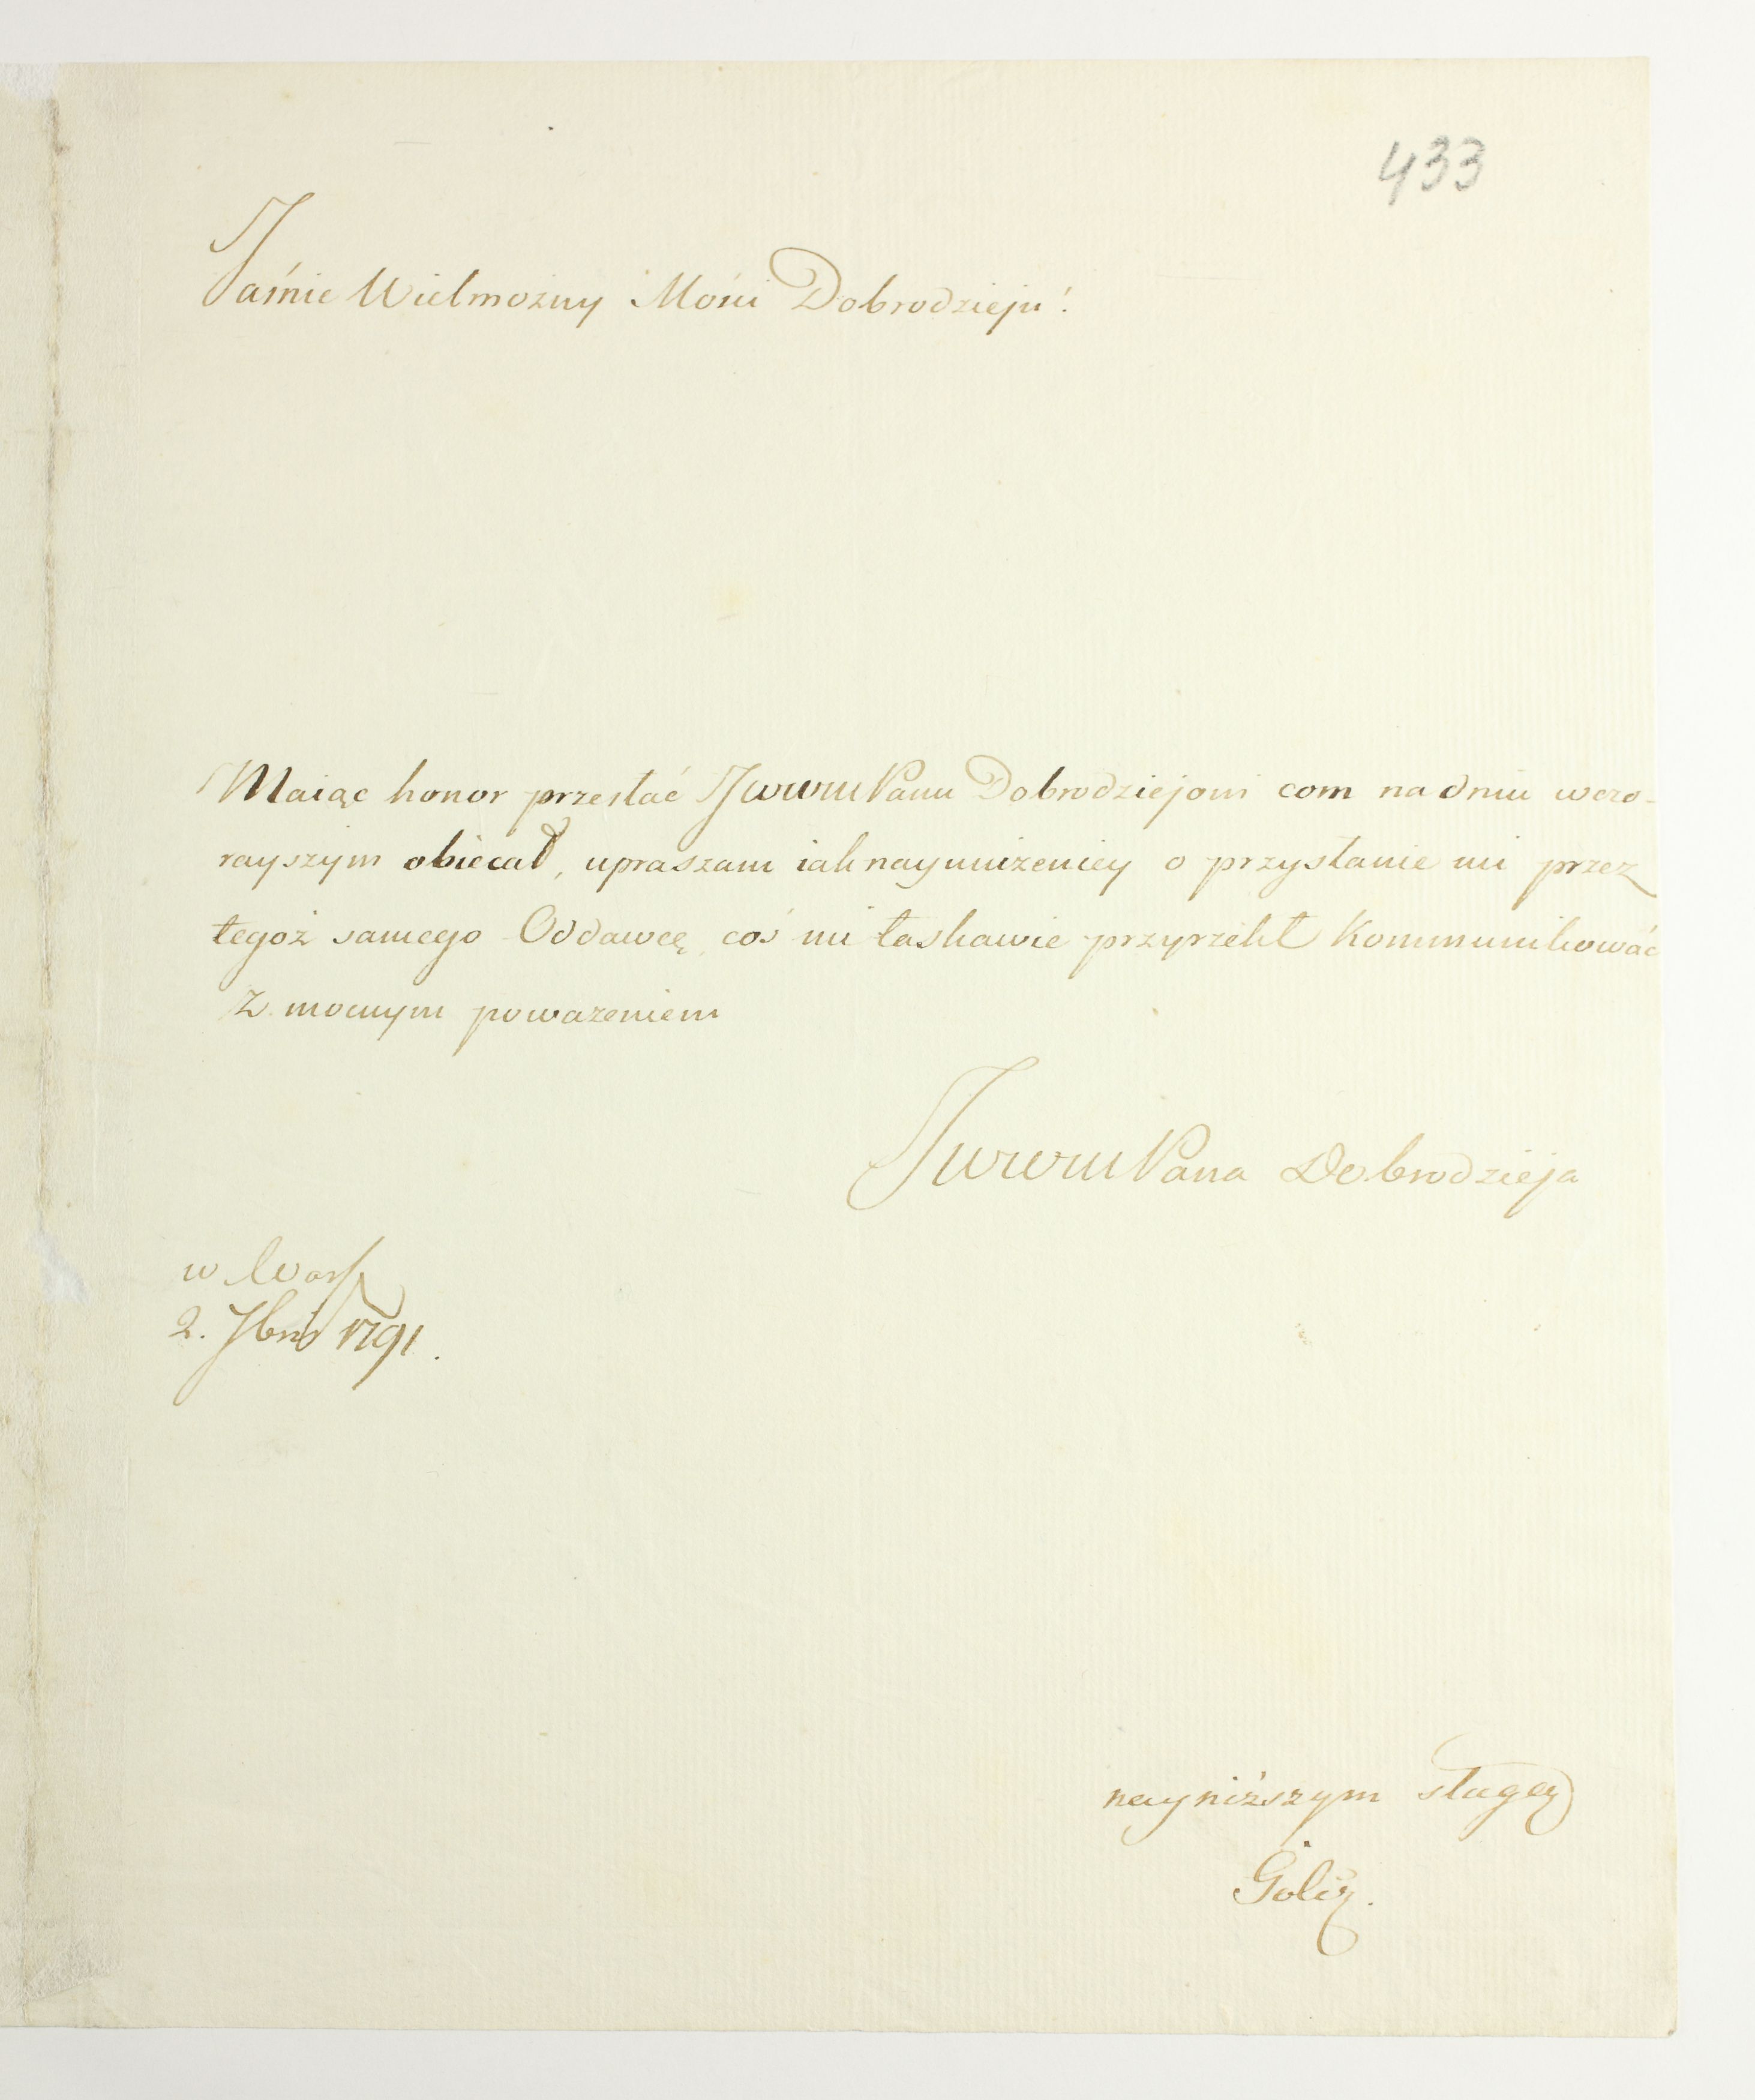 433
Jaśnie Wielmożny Mości Dobrodzieju!
Maiąc honor przesłać JWWMPanu Dobrodziejowi com na dniu wczo-
rayszym obiecał, upraszam iak nayuniżeniey o przysłanie mi przez
tegoż samego Oddawcę, coś mi łaskawie przyrzekł Kommunikować
Z mocnym poważeniem
JWWMPana Dobrodzieja
w Warsz
2. 7bris 1791.
nayniższym sługą
Goltz.